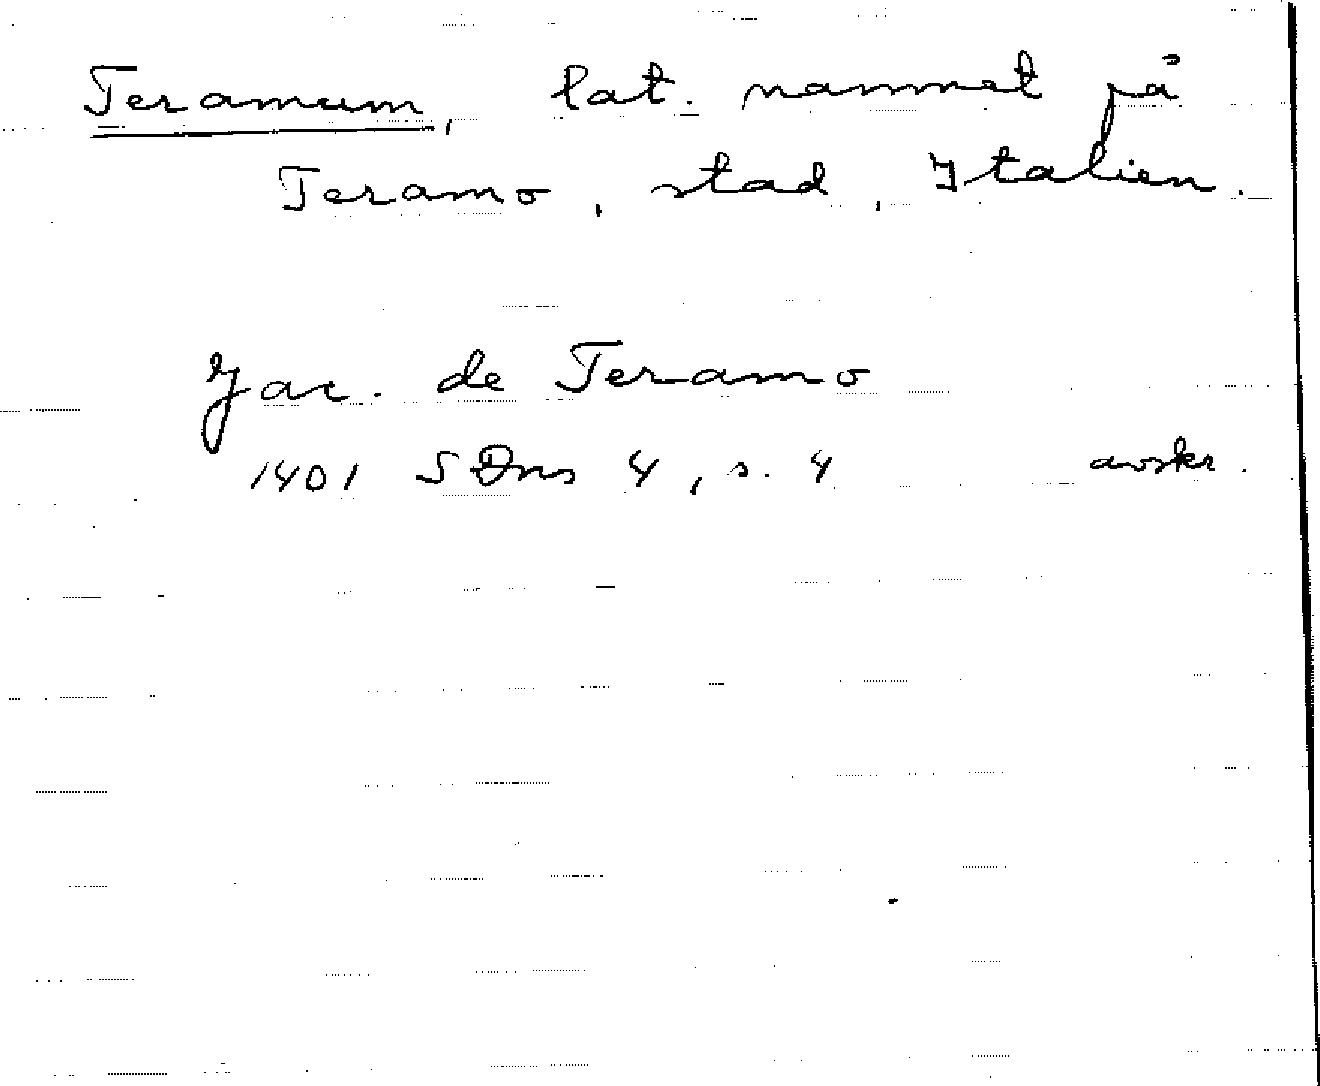 Teramum, lat. namnet på
Teramo, stad, Italien.
Jac. de Teramo
1401 SDns 4, s. 4 avskr.